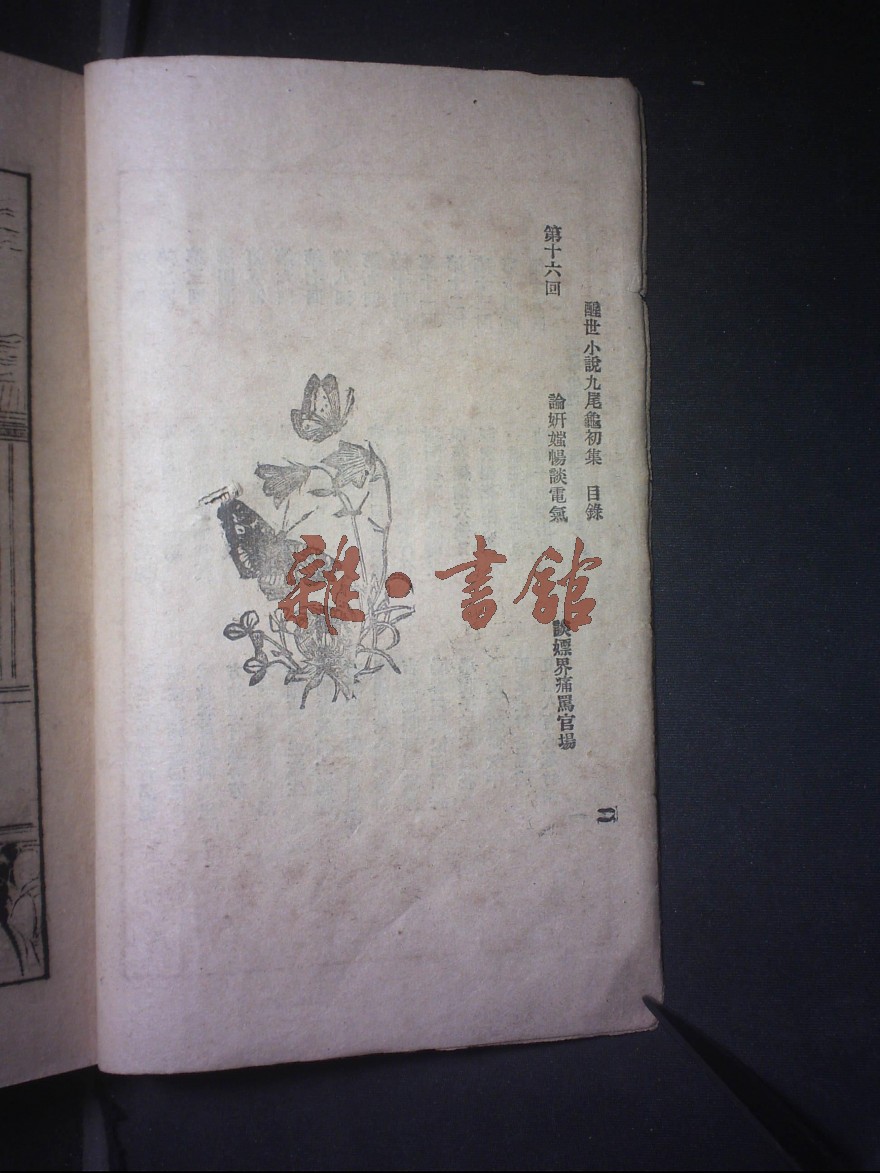 醒世小說九尾龜初集　目錄
第十六回　論姸媸暢談電氣　談嫖界痛罵官場
二
雜·書館